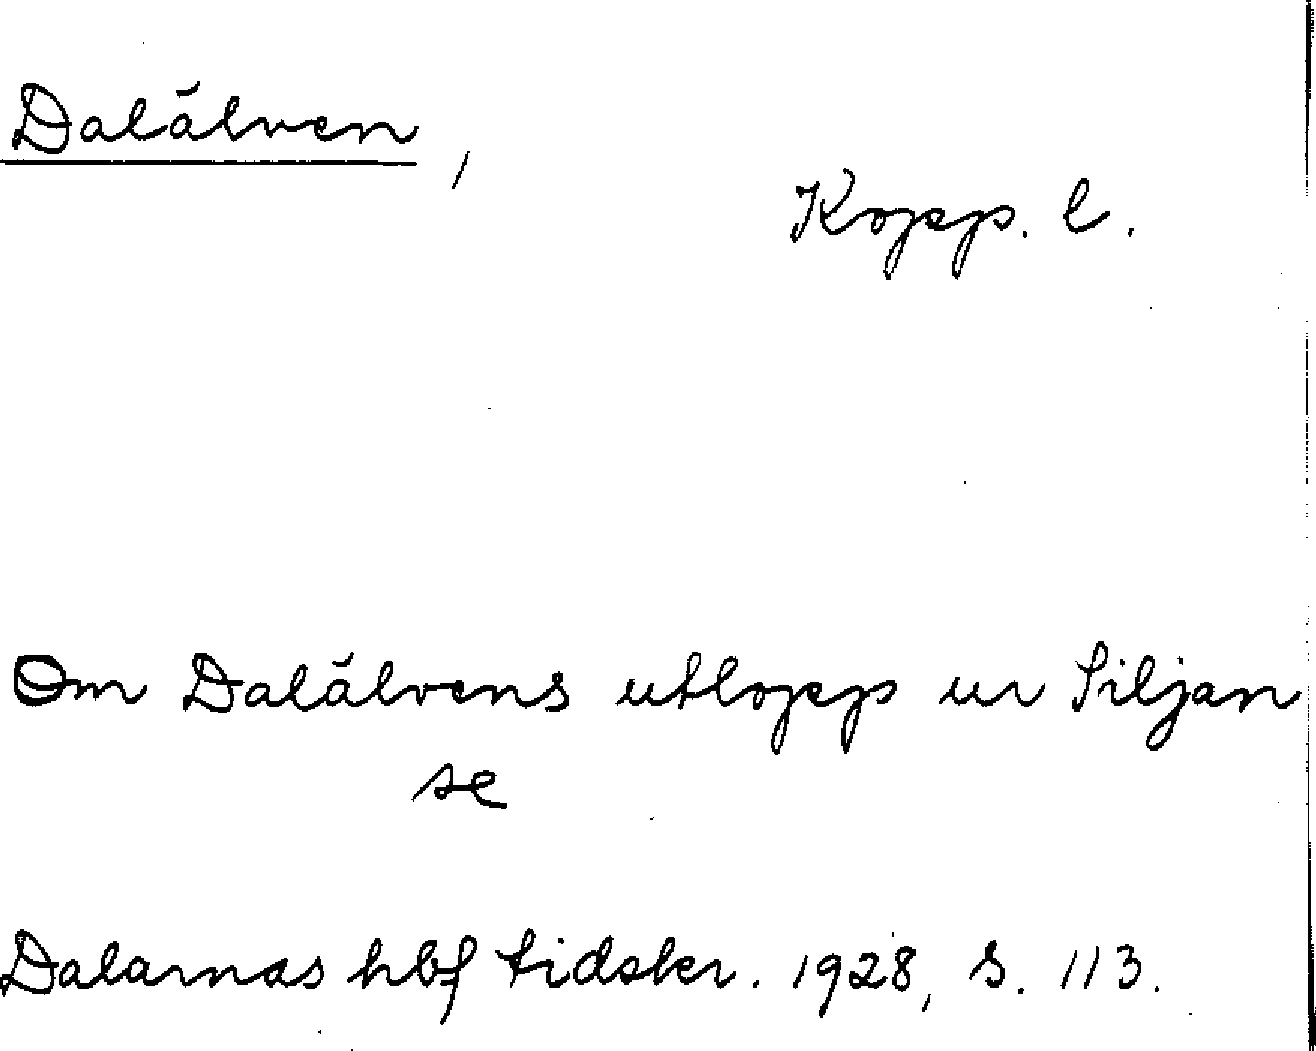 Dalälven,
Kopp. l.
Om Dalälvens utlopp ur Siljan
se
Dalarnas hbf tidskr. 1928, s. 113.